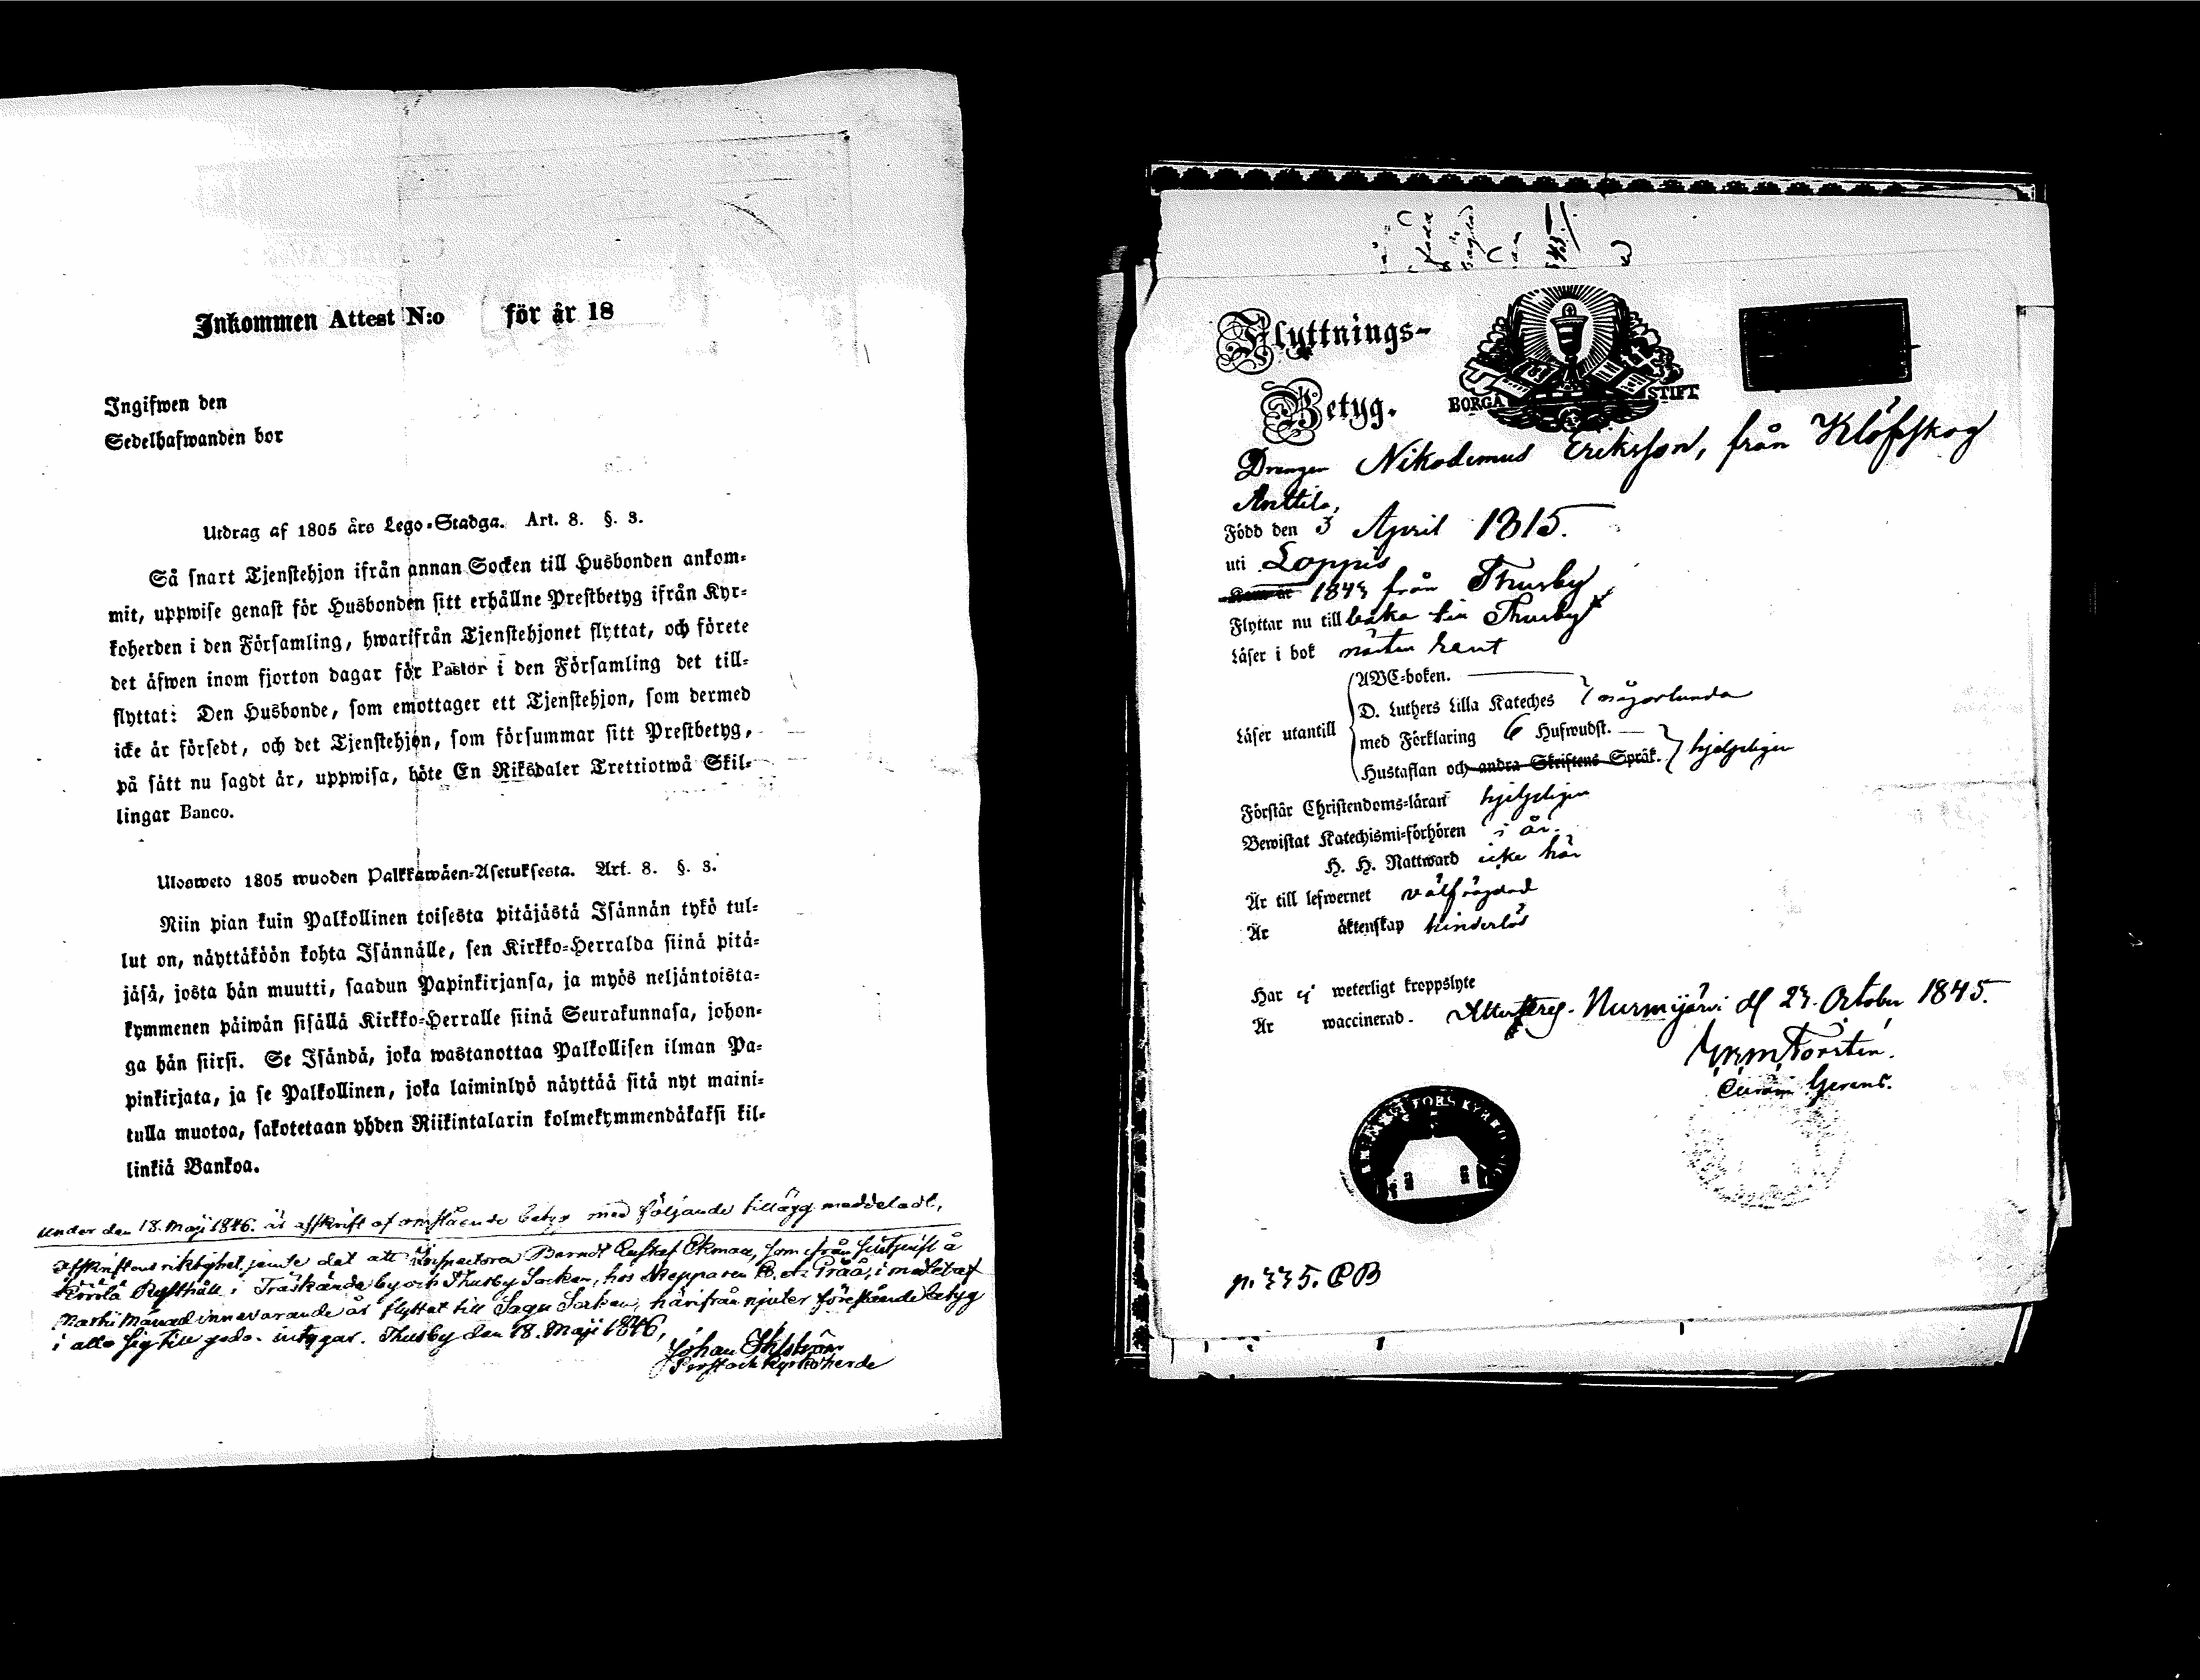 Inkommen Attest N:o för år 18
Ingifwen den
Sedelhafwanden bor
Utdrag af 1805 års Lego-Stadga. Art. 8. §. 3.
Så snart Tjenstehjon ifrån annan Socken till Husbonden ankom-
mit, uppwise genast för Husbonden sitt erhållne Prestbetyg ifrån Kyr-
koherden i den Församling, hwarifrån Tjenstehjonet flyttat, och förete
det äfwen inom fjorton dagar för Pastor i den Församling det till-
flyttat: Den Husbonde, som emottager ett Tjenstehjon, som dermed
icke är försedt, och det Tjenstehjon, som försummar sitt Prestbetyg,
på sätt nu sagdt är, uppwisa, böte En Riksdaler Trettiotwå Skil-
lingar Banco.
Ulosweto 1805 wuoden Palkkawäen-Asetuksesta. Art. 8. §. 3.
Niin pian kuin Palkollinen toisesta pitäjästä Isännän tykö tul-
lut on, näyttäköön kohta Isännälle, sen Kirkko-Herralda siinä pitä-
jäsä, josta hän muutti, saadun Papinkirjansa, ja myös neljäntoista-
kymmenen päiwän sisällä Kirkko-Herralle siinä Seurakunnasa, johon-
ga hän siirsi. Se Isändä, joka wastanottaa Palkollisen ilman Pa-
pinkirjata, ja se Palkollinen, joka laiminlyö näyttää sitä nyt maini-
tulla muotoa, sakotetaan yhden Riikintalarin kolmekymmendäkaksi kil-
linkiä Bankoa.
Under den 18. Maji 1846. är afskrift af omstående betyg med följande tillägg meddeladt,
Afskriftens riktighet jemte det att Inspectoren Berndt Gustaf Ekman, som ifrån
Rusthåll i Träskända by och Thusby Socken, hos i medlet af
Martii Månad innevarande år flyttat till Sagu Socken, härifrån njuter förestående betyg
i allo sig till godo - intygar. Thusby den 18. Maji 1846,
Johan
Prost och Kyrkoherde
Flyttnings-
Betyg.
BORGÅ STIFT
Drengen Nikodemus Eriksson, från Klöfskog
Anttila,
Född den 3 April 1815.
uti Loppis
1843 från Thusby
Flyttar nu till baka till Thusby
Läser i bok nästan rent
Läser utantill
ABC-boken.
D. Luthers Lilla Kateches någorlunda
med Förklaring 6 Hufwudst.
Hustaflan och andra Skriftens Språk. hjelpligen
Förstår Christendoms-läran hjelpligen
Bewistat Katechismi-förhören i år.
H. H. Nattward icke här
Är till lefwernet välfrägdad
Är äktenskap hinderlös
Har ej weterligt kroppslyte
Är waccinerad. Attesteras. Nurmijärvi d 23. October 1845.
Forstén.
Curam Gerens.
p. 335. CB